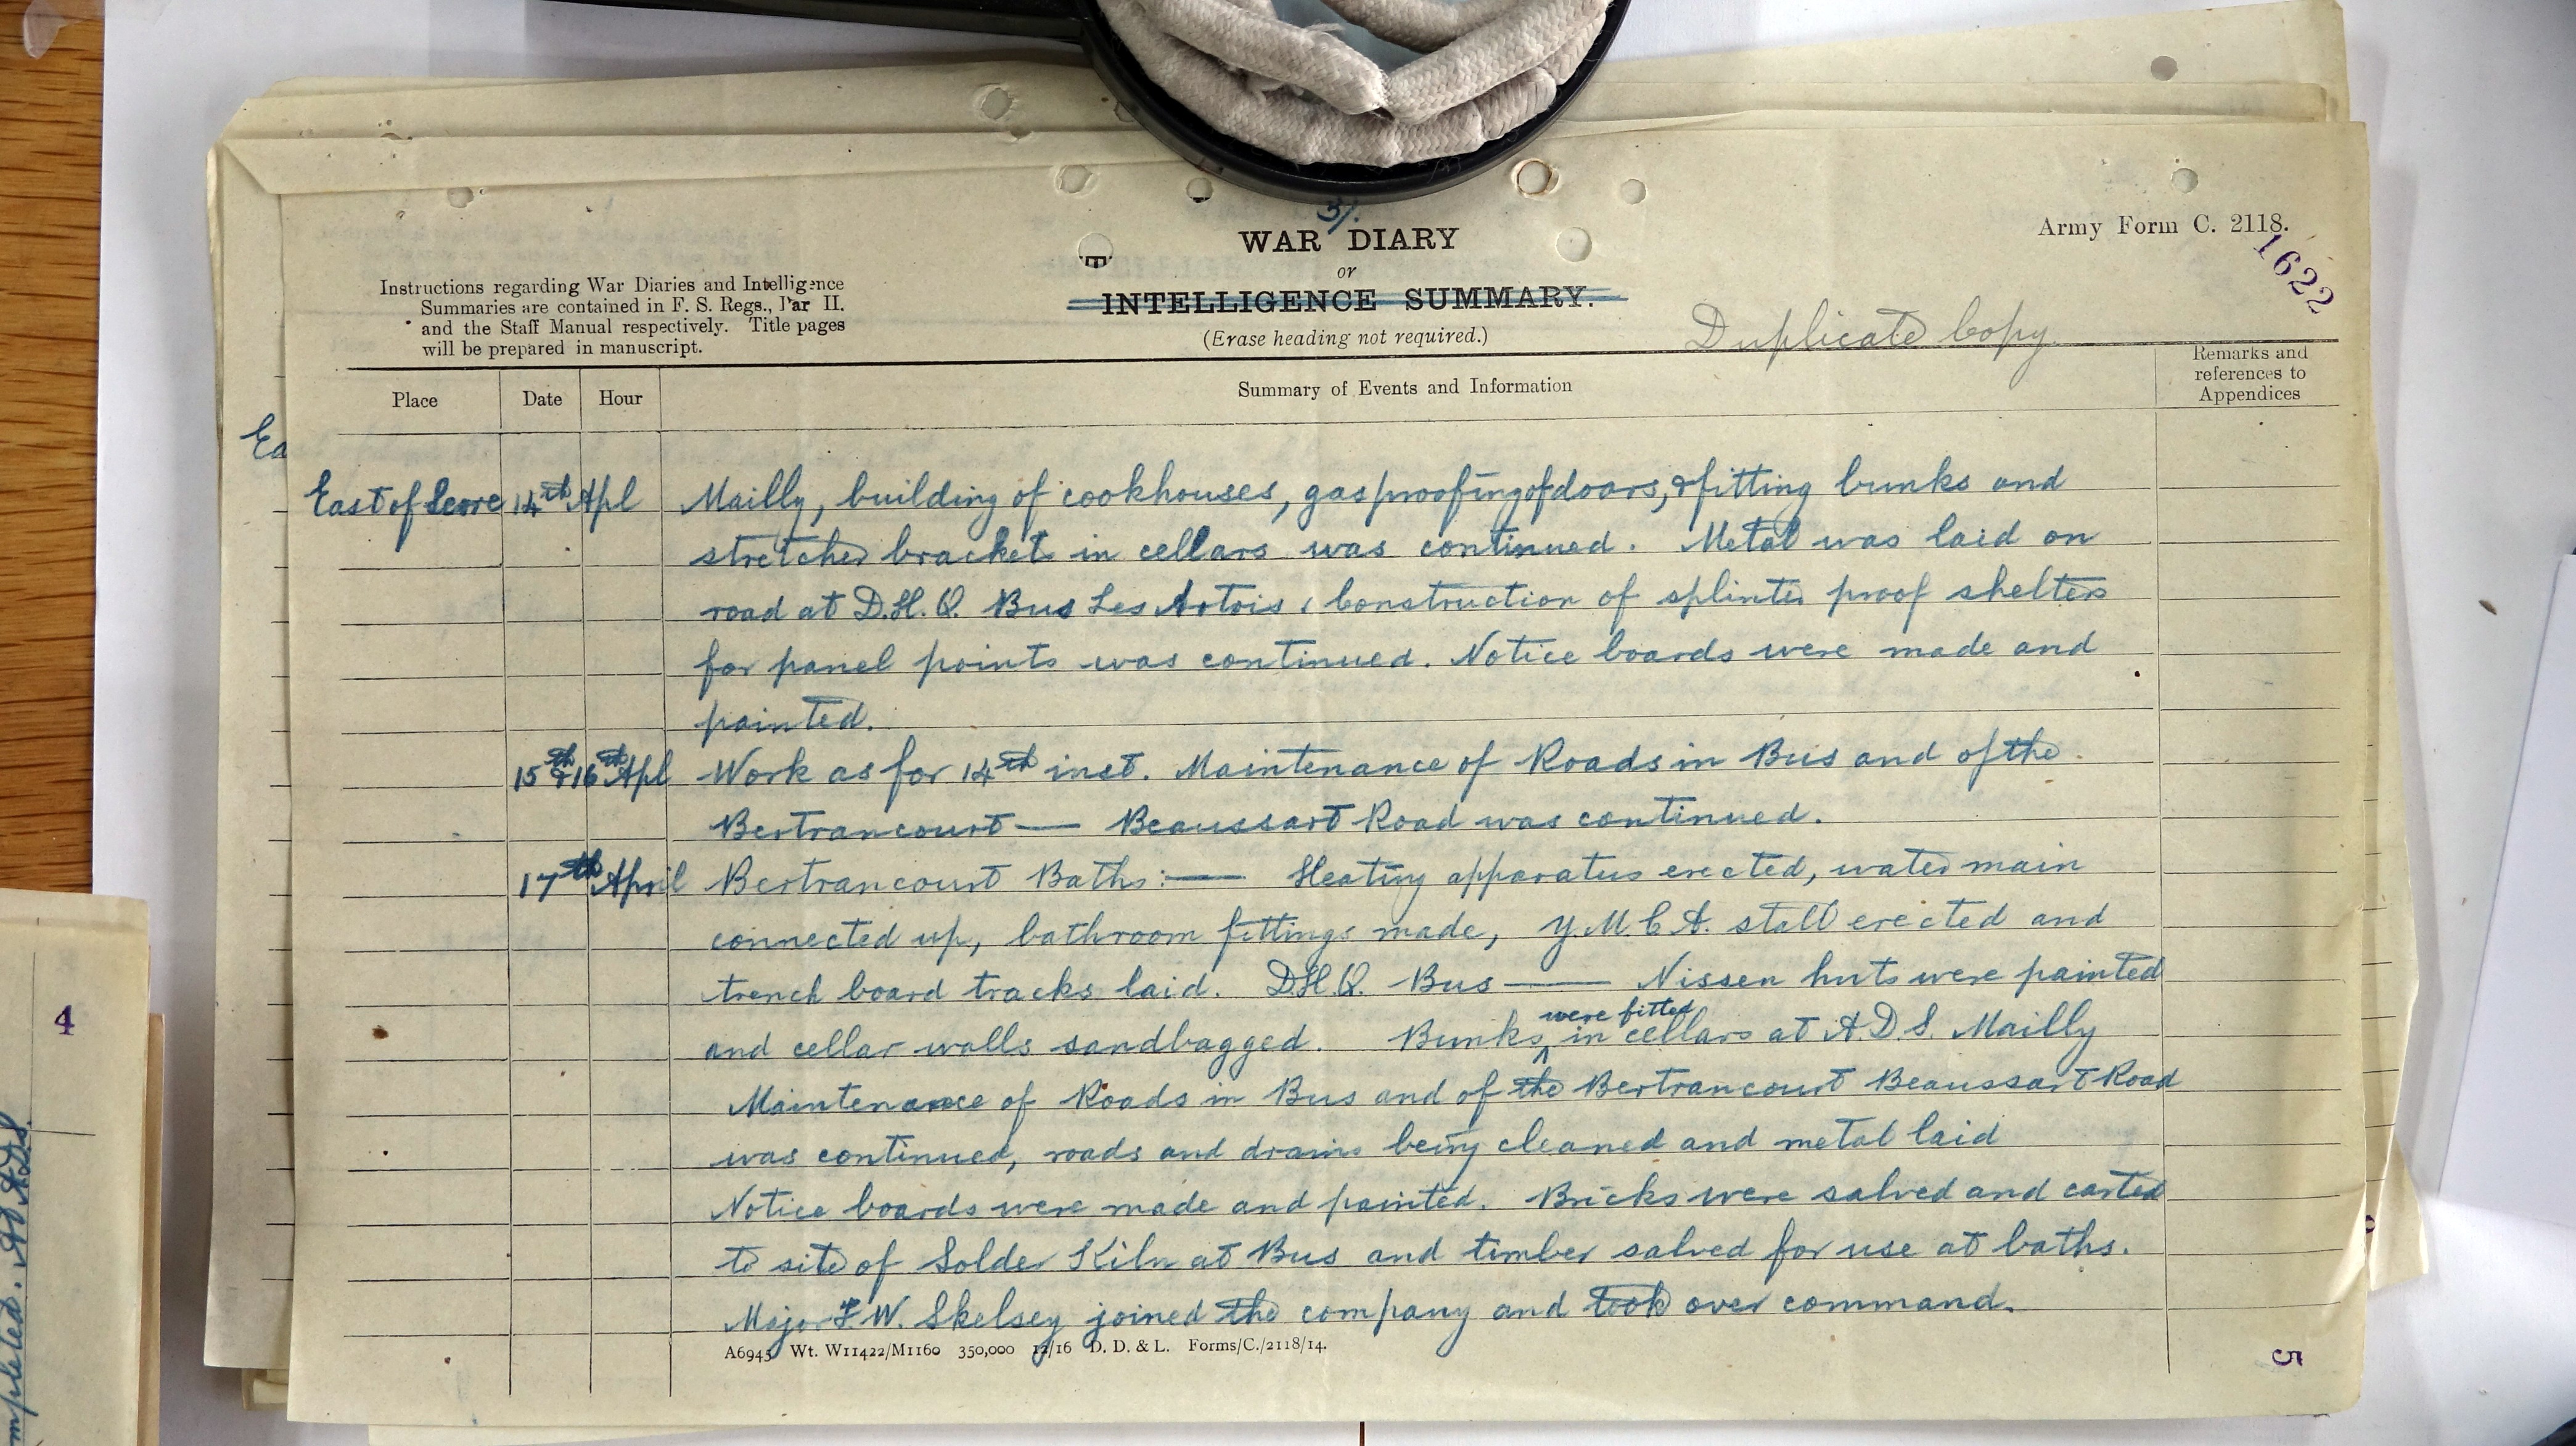 3/.
WAR DIARY
or
INTELLIGENCE SUMMARY.
(Erase heading not required.)
Army Form C. 2118.
1622
Instructions regarding War Diaries and Intelligence
Summaries are contained in F. S. Regs., Par II.
and the Staff Manual respectively. Title pages
will be prepared in manuscript.
Duplicate Copy.
Place Date Hour Summary of Events and Information Remarks and references to Appendices
Ea
East of Serre 14th Apl Mailly, building of cookhouses, gasproofing of doors, & fitting bunks and
stretcher brackets in cellars was continued. Metal was laid on
road at D.H.Q. Bus Les Artois, Construction of splinter proof shelters
for panel points was continued. Notice boards were made and
painted.
15th & 16th Apl Work as for 14th inst. Maintenance of Roads in Bus and of the
Bertrancourt — Beaussart Road was continued.
17th April Bertrancourt Baths:— Heating apparatus erected, water main
connected up, bathroom fittings made, Y.M.C.A. stall erected and
trench board tracks laid. D.H.Q. Bus — Nissen huts were painted
and cellar walls sandbagged. Bunks were fitted in cellars at A.D.S. Mailly
Maintenance of Roads in Bus and of the Bertrancourt Beaussart Road
was continued, roads and drains being cleaned and metal laid
Notice boards were made and painted. Bricks were salved and carted
to site of Solder Kiln at Bus and timber salved for use at baths.
Major F.W. Skelsey joined the company and took over command.
A6945 Wt. W11422/M1160 350,000 12/16 D. D. & L. Forms/C./2118/14.
5
4